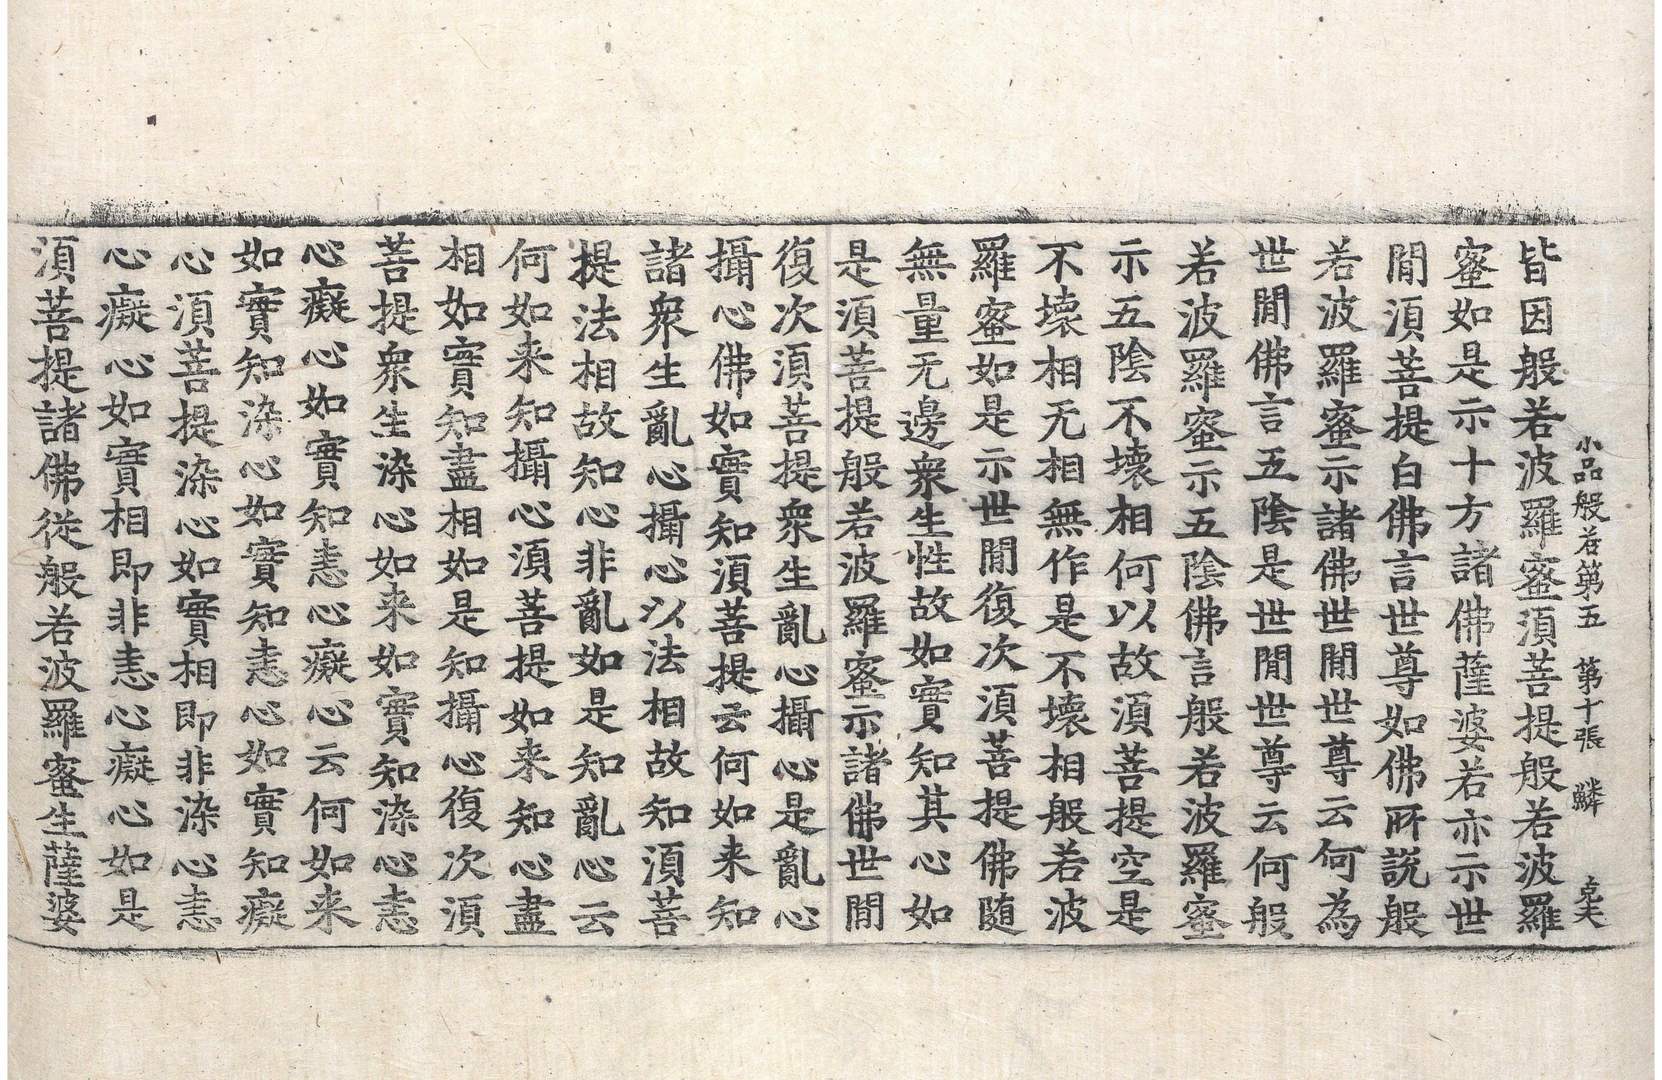 小品般若第五 第十張 鱗 克夫
皆因般若波羅蜜須菩提般若波羅
蜜如是示十方諸佛薩婆若亦示世
閒須菩提白佛言世尊如佛所說般
若波羅蜜示諸佛世閒世尊云何為
世閒佛言五陰是世閒世尊云何般
若波羅蜜示五陰佛言般若波羅蜜
示五陰不壞相何以故須菩提空是
不壞相无相無作是不壞相般若波
羅蜜如是示世閒復次須菩提佛隨
無量无邊衆生性故如實知其心如
是須菩提般若波羅蜜示諸佛世閒
復次須菩提衆生亂心攝心是亂心
攝心佛如實知須菩提云何如来知
諸衆生亂心攝心以法相故知須菩
提法相故知心非亂如是知亂心云
何如来知攝心須菩提如来知心盡
相如實知盡相如是知攝心復次須
菩提衆生染心如来如實知染心恚
心癡心如實知恚心癡心云何如来
如實知染心如實知恚心如實知癡
心須菩提染心如實相即非染心恚
心癡心如實相即非恚心癡心如是
須菩提諸佛從般若波羅蜜生薩婆